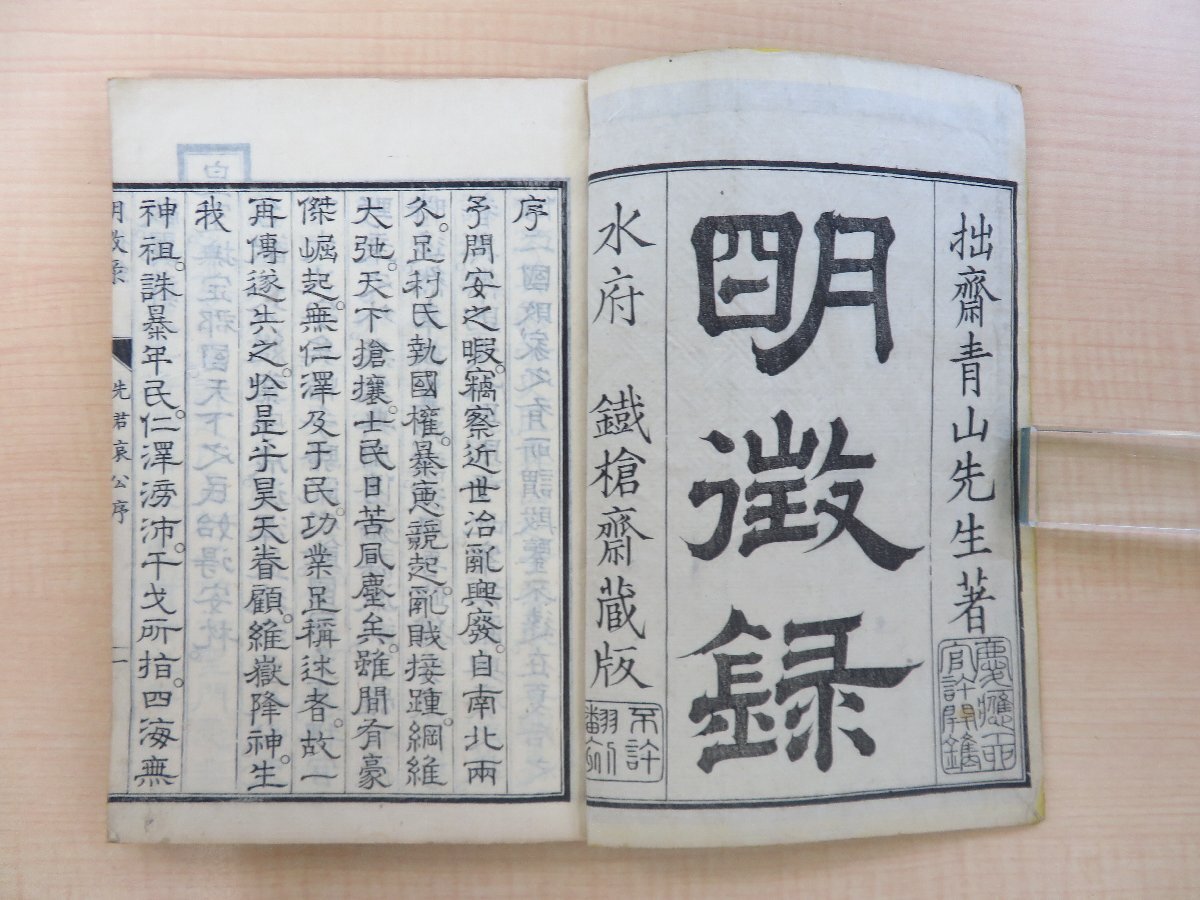 拙齋青山先生著
明徴録
水府 鐵槍齋蔵版
不許
翻刻
官許開鐫
序
予問安之暇。竊察近世治亂興廢。自南北兩
分。足利氏執國權。暴悳競起。亂賊接踵。綱維
大弛。天下搶攘。士民日苦風塵矣。雖間有豪
傑崛起。無仁澤及于民。功業足稱述者。故一
再傳遂失之。於是乎昊天眷顧。維嶽降神。生
我
神祖。誅暴年民。仁澤滂沛。干戈所指。四海無
先君哀公序